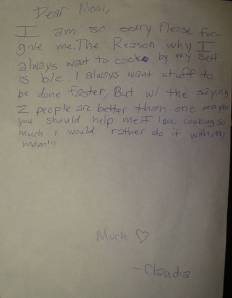 Dear Mom,
I am so sorry Please for
give me. The Reason why I
always want to cook by my self
is b/c I always want stuff to
be done faster, But w/ the saying
2 people are better than one maybe
you should help me. I love cooking so
much I would rather do it with my
mom!!
Much ♡
-Claudia